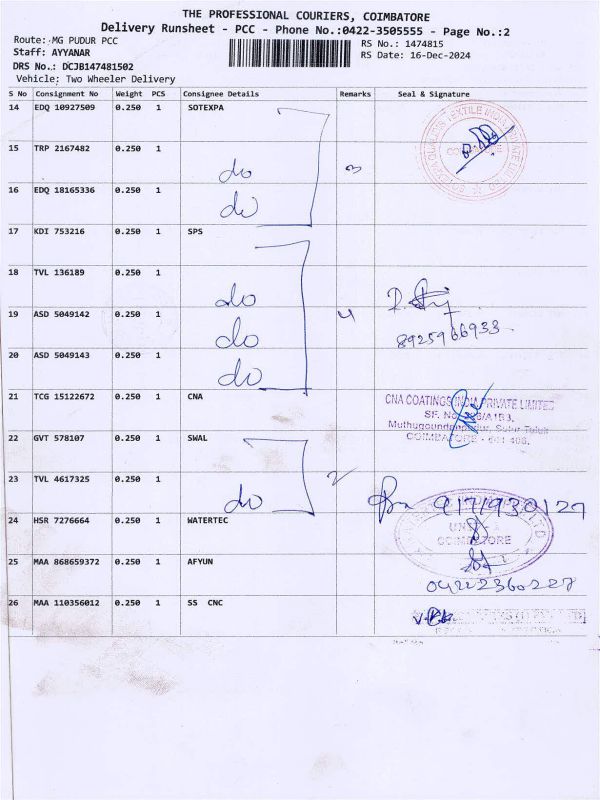 THE PROFESSIONAL COURIERS, COIMBATORE
Delivery Runsheet - PCC - Phone No.:0422-3505555 - Page No.:2
Route: MG PUDUR PCC
Staff: AYYANAR
RS No.: 1474815
RS Date: 16-Dec-2024
DRS No.: DCJB147481502
Vehicle: Two Wheeler Delivery
S No Consignment No Weight PCS Consignee Details Remarks Seal & Signature
14 EDQ 10927509 0.250 1 SOTEXPA
15 TRP 2167482 0.250 1 do 3
16 EDQ 18165336 0.250 1 do
17 KDI 753216 0.250 1 SPS
18 TVL 136189 0.250 1 do
19 ASD 5049142 0.250 1 do 4 8925966933
20 ASD 5049143 0.250 1 do
21 TCG 15122672 0.250 1 CNA
CNA COATINGS INDIA PRIVATE LIMITED
SF. No.
Muthugoundenpudur, Sulur Taluk
COIMBATORE - 641 406.
22 GVT 578107 0.250 1 SWAL
23 TVL 4617325 0.250 1 do 2 9171930127
24 HSR 7276664 0.250 1 WATERTEC
COIMBATORE
25 MAA 868659372 0.250 1 AFYUN
04222360227
26 MAA 110356012 0.250 1 SS CNC